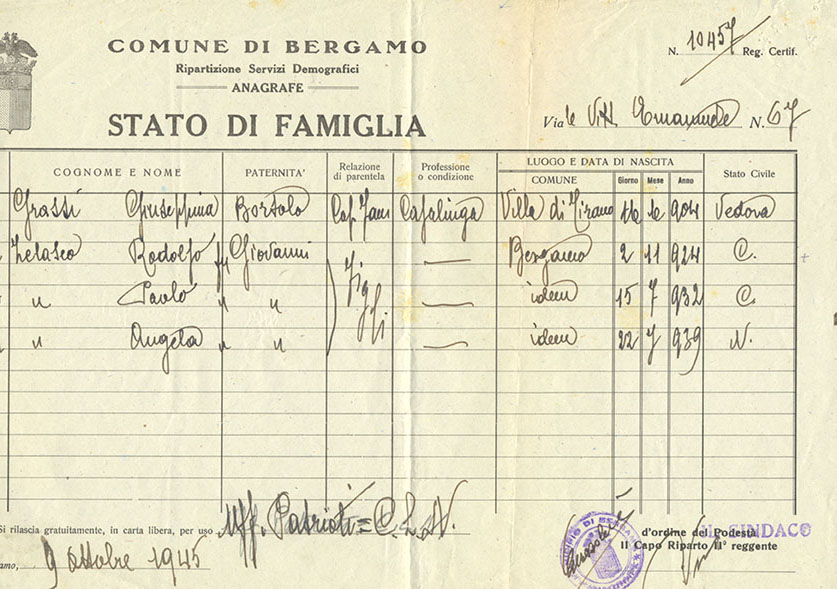 COMUNE DI BERGAMO
N. 10457 Reg. Certif.
Ripartizione Servizi Demografici
ANAGRAFE
STATO DI FAMIGLIA
Via le Vitt. Emanuele N. 67
COGNOME E NOME PATERNITA' Relazione di parentela Professione o condizione LUOGO E DATA DI NASCITA COMUNE Giorno Mese Anno Stato Civile
Grassi Giuseppina Bortolo Cap. Fam Casalinga Villa di Tirano 904 Vedova
Zelasco Rodolfo fu Giovanni Figli Bergamo 2 11 924 C.
" Paolo " " idem 15 7 932 C.
" Angela " " idem 22 7 939 N.
Si rilascia gratuitamente, in carta libera, per uso Uff. Patrioti = C.L.N.
d'ordine del Podestà IL SINDACO
Il Capo Riparto IIº reggente
amo, 9 ottobre 1945
MUNICIPIO DI BERGAMO